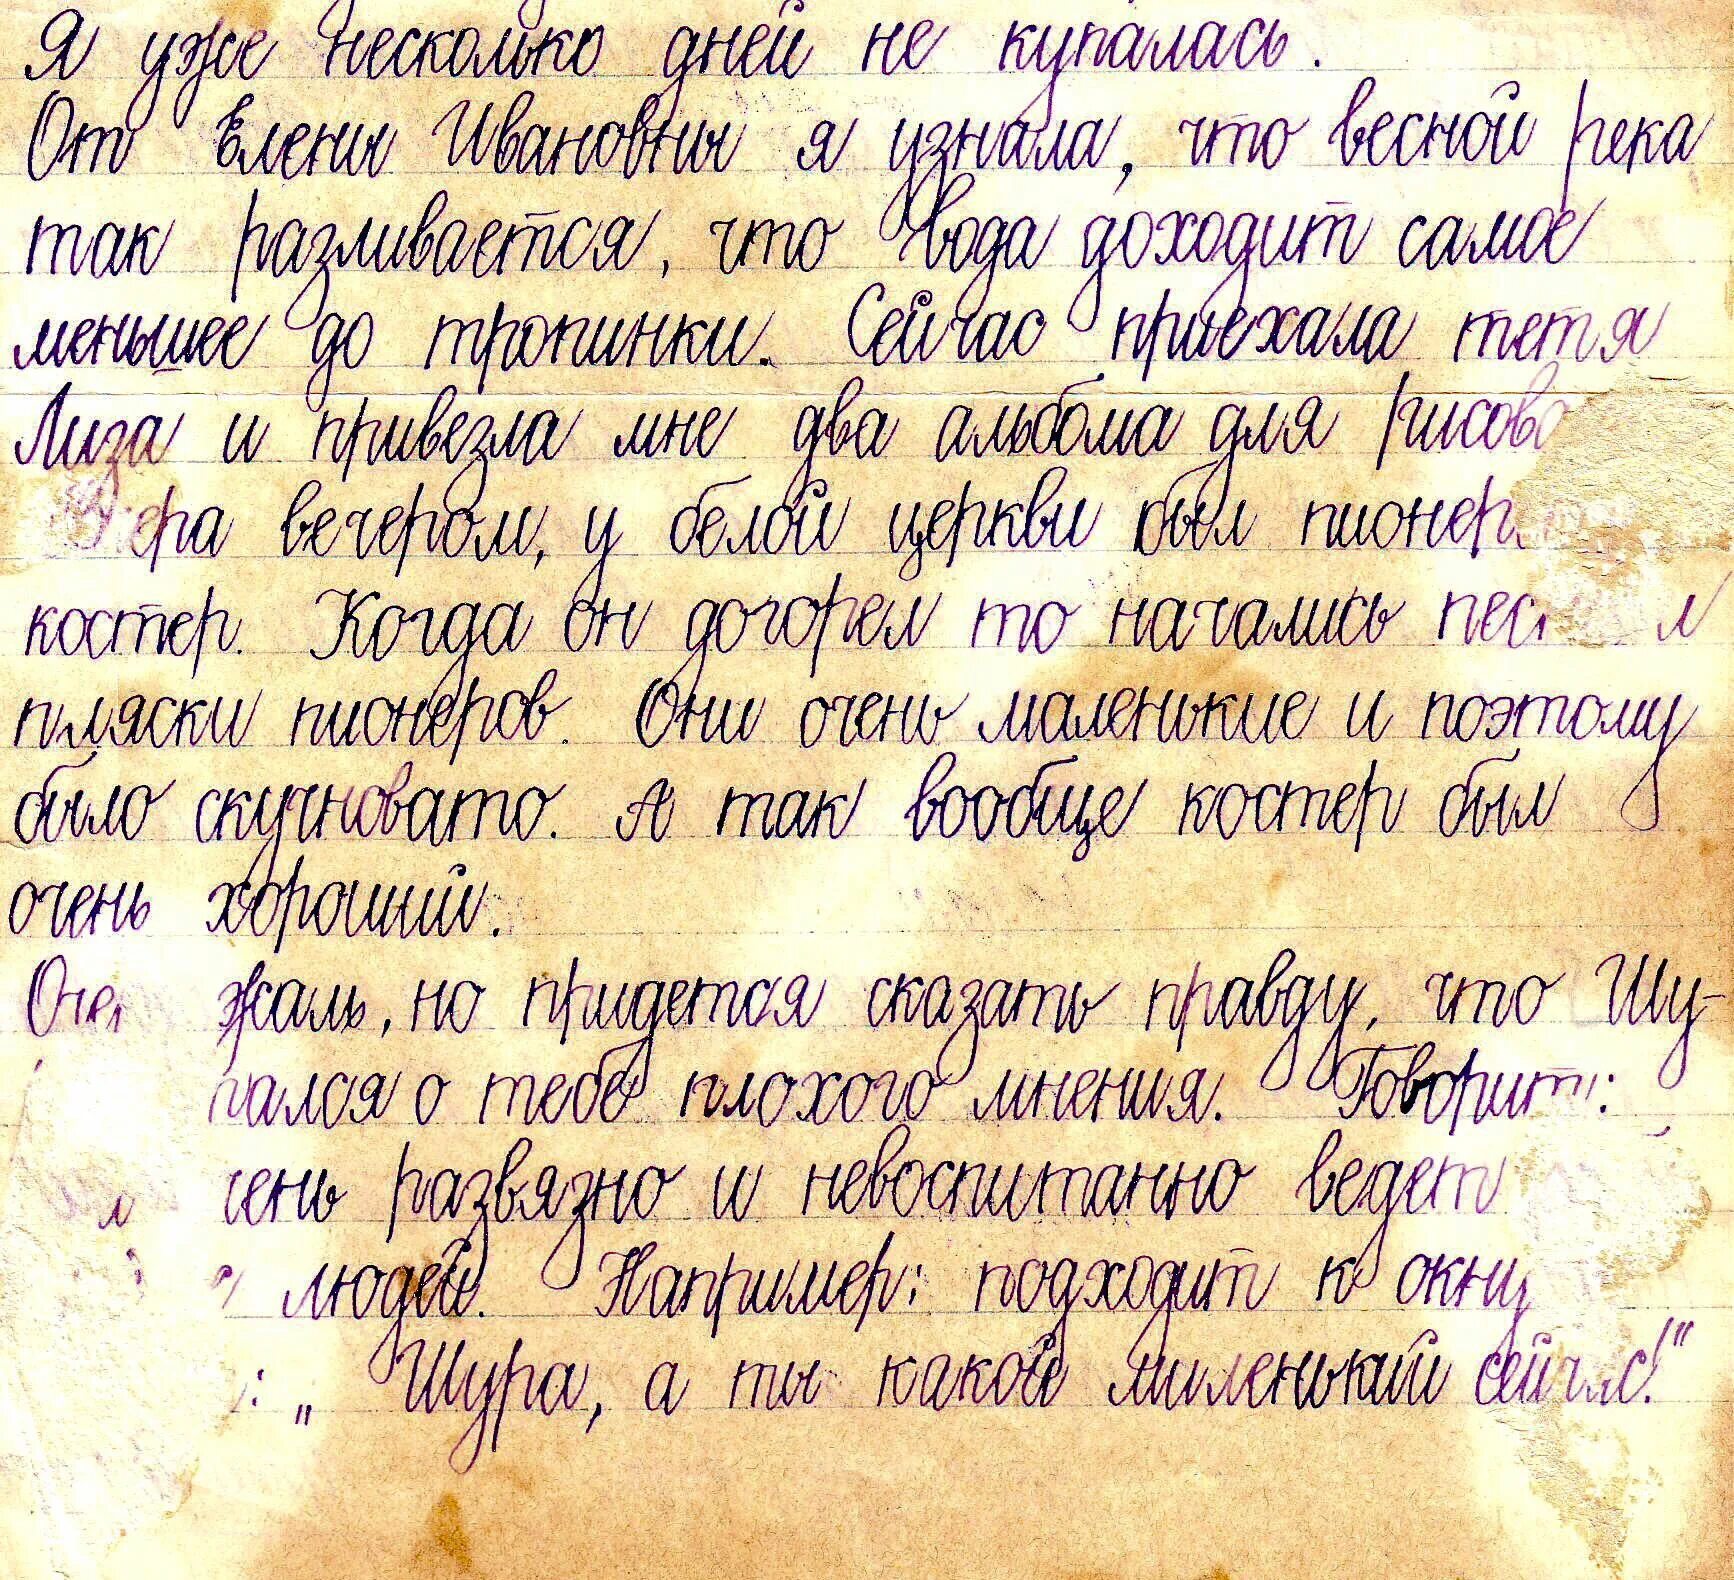 Я уже несколько дней не купалась.
От Елены Ивановны я узнала, что весной река
так разливается, что вода доходит самое
меньшее до тропинки. Сейчас приехала тетя
Лиза и привезла мне два альбома для
вечером, у белой церкви был
костер. Когда он догорел то начались
пляски пионеров. Они очень маленькие и поэтому
было скучновато. А так вообще костер был
очень хороший.
жаль, но придется сказать правду, что Шу-
о тебе плохого мнения.
развязно и невоспитанно ведет
людей. Например: подходит к окну
„Шура, а ты какой миленький сейчас!"